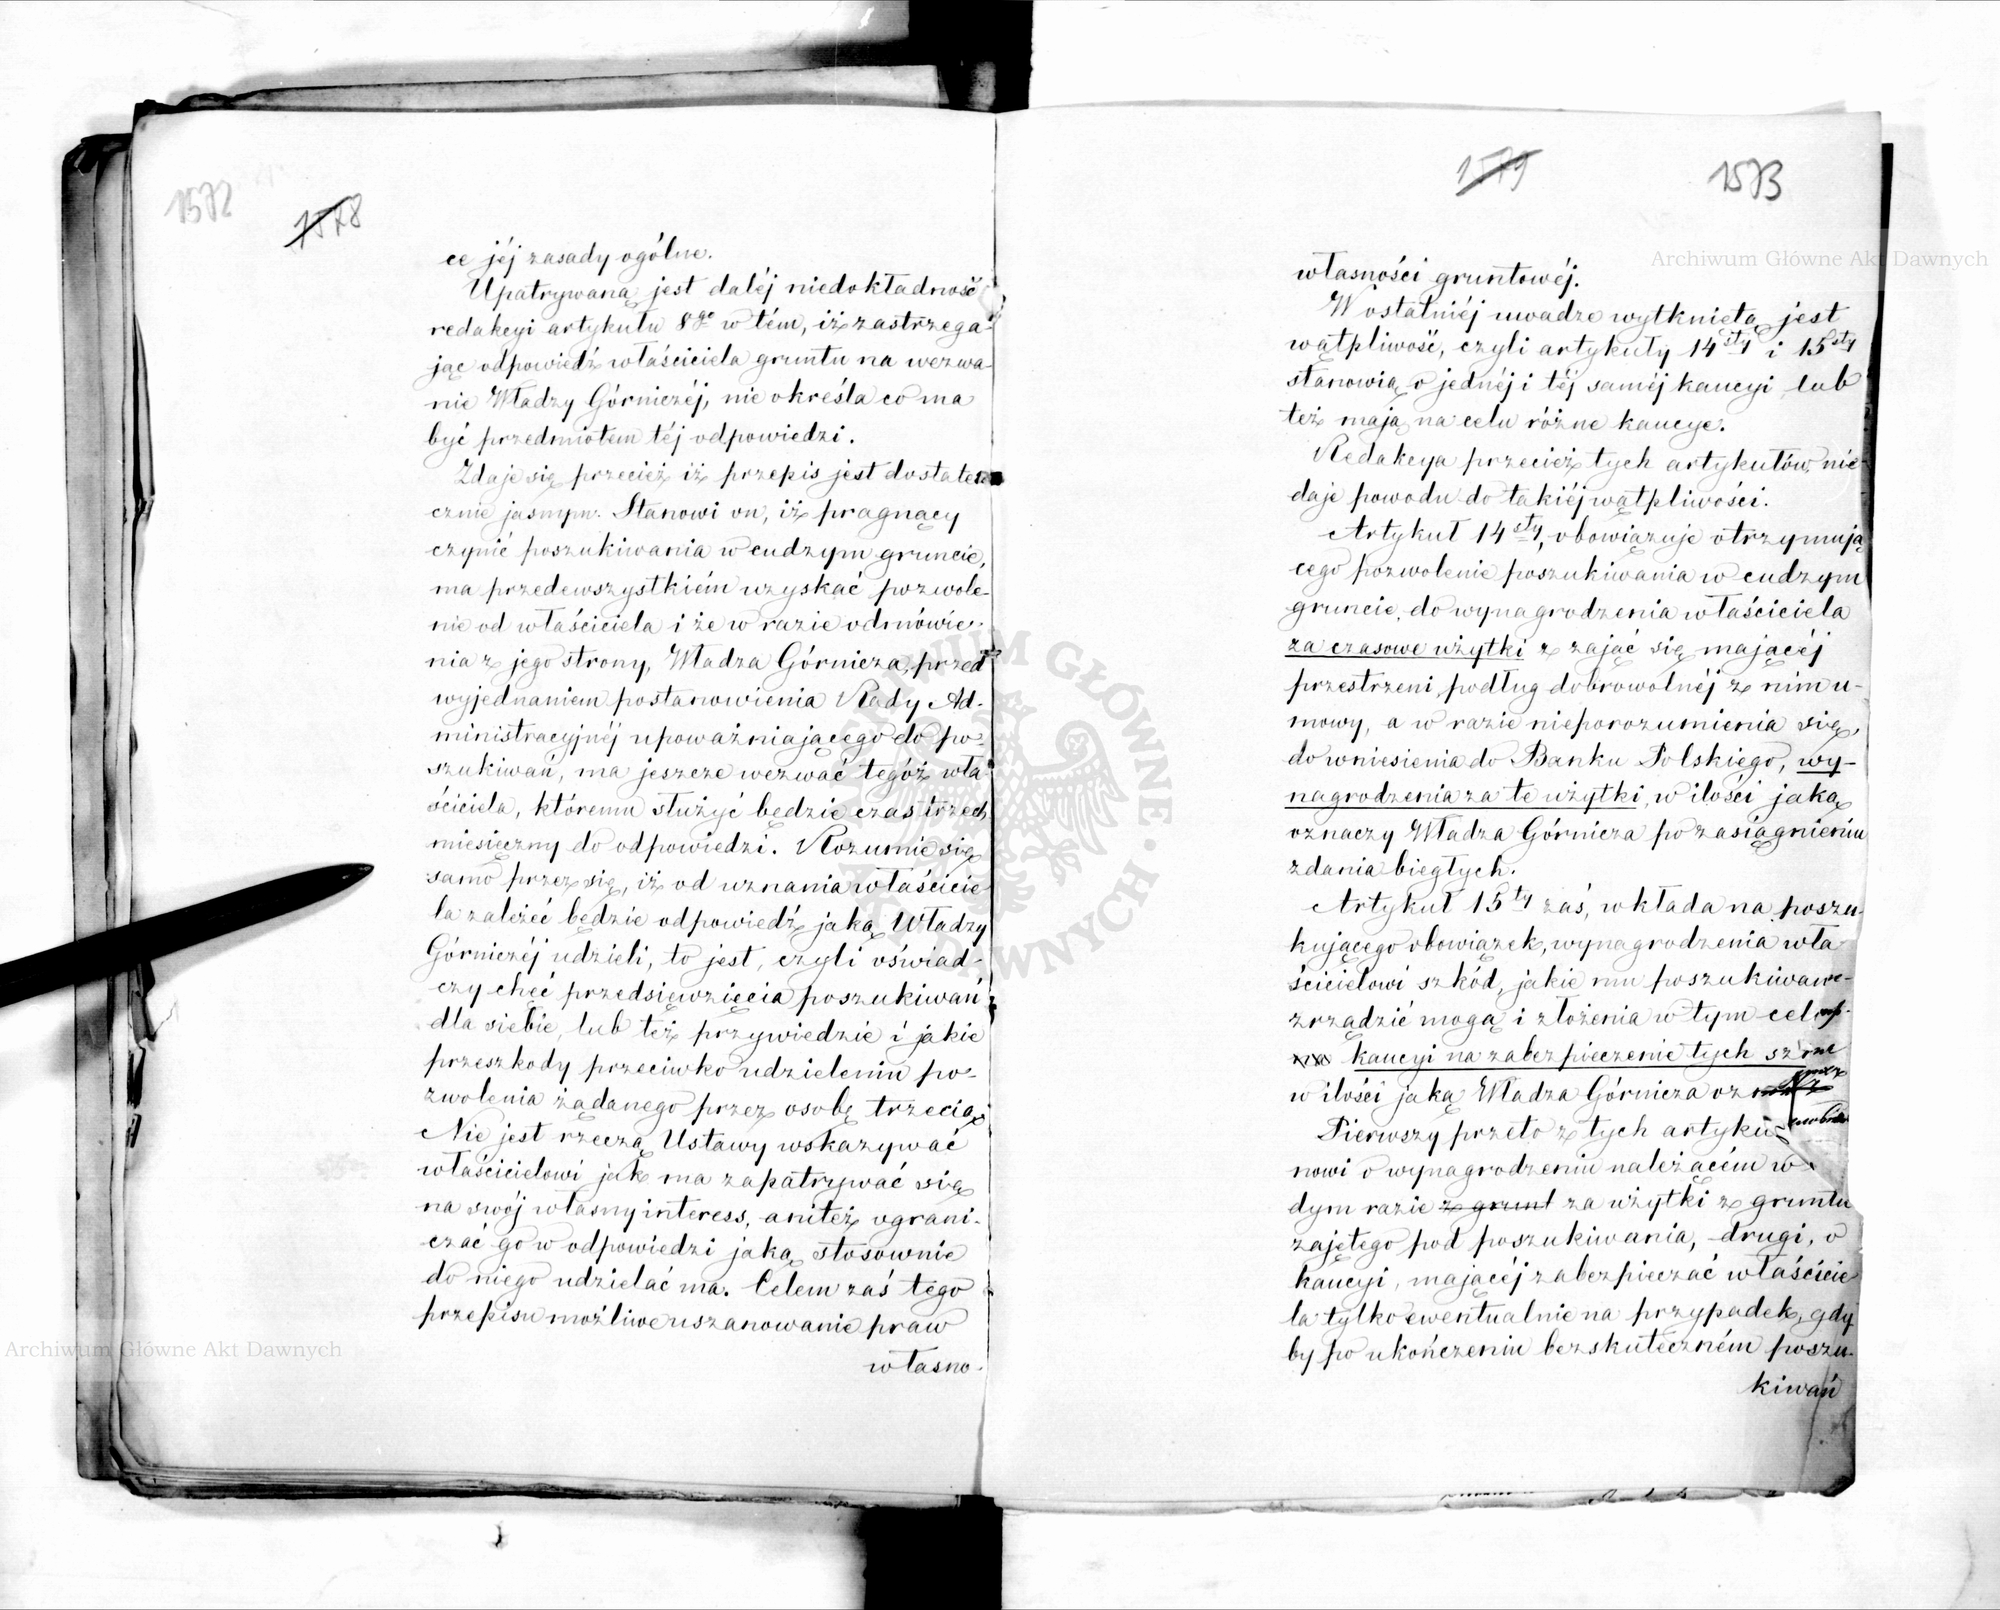 1572
1578
ce jéj zasady ogólne.
Upatrywaną jest daléj niedokładność
redakcyi artykułu 8go w tém, iż zastrzega-
jąc odpowiedź właściciela gruntu na wezwa-
nie Władzy Górniczéj, nie określa co ma
być przedmiotem téj odpowiedzi.
Zdaje się przecież iż przepis jest dostate-
cznie jasnym. Stanowi on, iż pragnący
czynić poszukiwania w cudzym gruncie,
ma przedewszystkiém uzyskać pozwole-
nie od właściciela i że w razie odmówie-
nia z jego strony, Władza Górnicza, przed
wyjednaniem postanowienia Rady Ad-
ministracyjnéj upoważniającego do po-
szukiwań, ma jeszcze wezwać tegóż wła-
ściciela, któremu służyć będzie czas trzech
miesięczny do odpowiedzi. Rozumie się
samo przez się, iż od uznania właścicie-
la zależeć będzie odpowiedź jaką Władzy
Górniczéj udzieli, to jest, czyli oświad-
czy chęć przedsięwzięcia poszukiwań
dla siebie, lub też przywiedzie i jakie
przeszkody przeciwko udzieleniu po-
zwolenia żądanego przez osobę trzecią.
Nie jest rzeczą Ustawy wskazywać
właścicielowi jak ma zapatrywać się
na swój własny interess, aniteż ograni-
czać go w odpowiedzi jaką stosownie
do niego udzielać ma. Celem zaś tego
przepisu możliwe uszanowanie praw
własno-
1579
1573
własności gruntowéj.
W ostatniéj uwadze wytkniętą jest
wątpliwość, czyli artykuły 14sty i 15sty
stanowią o jednéj i téj saméj kaucyi, lub
też mają na celu różne kaucye.
Redakcya przecież tych artykułów, nie-
daje powodu do takiéj wątpliwości.
Artykuł 14sty, obowiązuje otrzymują
cego pozwolenie poszukiwania w cudzym
gruncie, do wynagrodzenia właściciela
za czasowe użytki z zająć się mającéj
przestrzeni, podług dobrowolnéj z nim u-
mowy, a w razie nieporozumienia się,
do wniesienia do Banku Polskiego, wy-
nagrodzenia za te użytki, w ilości jaką
oznaczy Władza Górnicza po zasiągnieniu
zdania biegłych.
Artykuł 15ty zaś, wkłada na poszu-
kującego obowiązek, wynagrodzenia wła-
ścicielowi szkód, jakie mu poszukiwane-
zrządzić mogą i złożenia w tym celu
kaucyi na zabezpieczenie tych
w ilości jaką Władza Górnicza
Pierwszy przeto z tych artyku
nowi o wynagrodzeniu należącém
dym razie z grunt za użytki z gruntu
zajętego pod poszukiwania, drugi, o
kaucyi, mającéj zabezpieczać właścicie
la tylko ewentualnie na przypadek, gdy
by po ukończeniu bezskuteczném poszu-
kiwań
Archiwum Główne Akt Dawnych
Archiwum Główne Akt Dawnych
ARCHIWUM GŁÓWNE AKT DAWNYCH